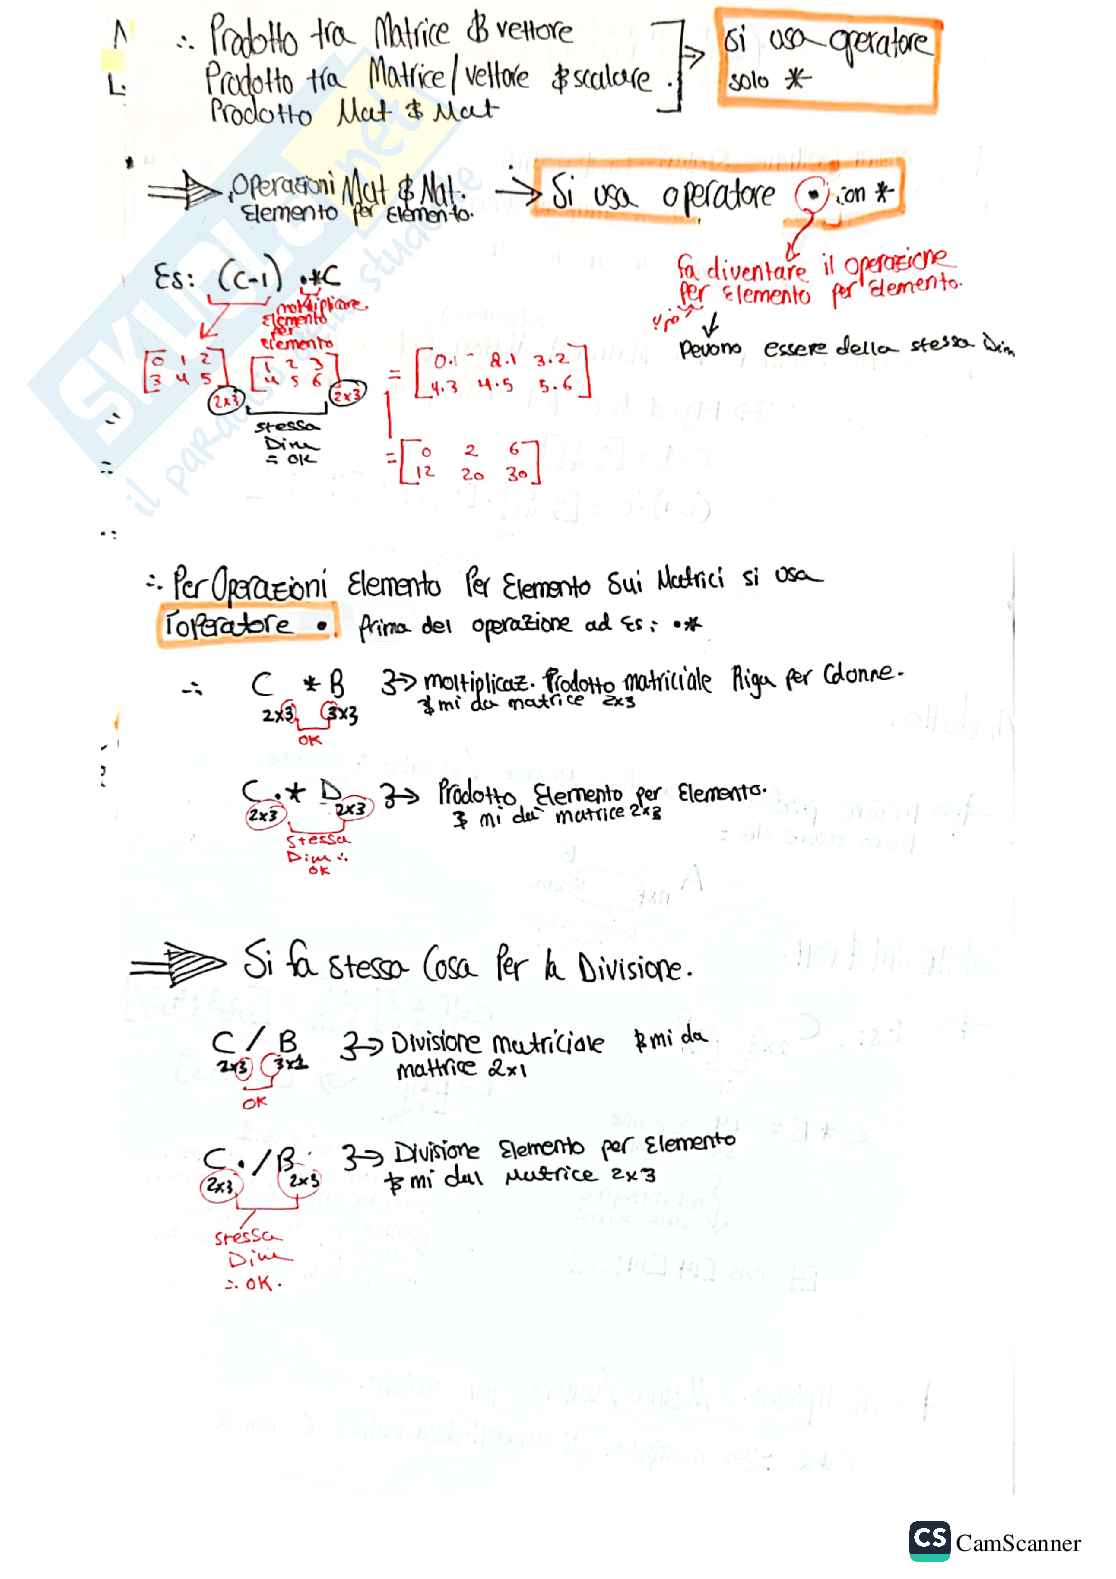 ∴ Prodotto tra Matrice & vettore
Prodotto tra Matrice/vettore & scalare.
Prodotto Mat & Mat
Si usa operatore
solo *
Operazioni Mat & Mat.
Elemento per Elemento.
Si usa operatore • con *
fa diventare il operazione
per Elemento per Elemento.
Devono essere della stessa Dim
Es: (C-1) .*C
moltiplicare
Elemento
per
Elemento
[0 1 2] [1 2 3] = [0.1 - 2.1 3.2]
[3 4 5] [4 5 6] [4.3 4.5 5.6]
2x3 2x3
stessa
Dim
= OK
= [0 2 6]
[12 20 30]
∴ Per Operazioni Elemento Per Elemento Sui Matrici si usa
l'operatore • prima del operazione ad Es: .*
∴ C * B → moltiplicaz. Prodotto matriciale Riga per Colonne.
2x3 3x3 & mi da matrice 2x3
OK
C .* D → Prodotto Elemento per Elemento.
2x3 2x3 & mi da matrice 2x3
stessa
Dim ∴
OK
⇒ Si fa stessa Cosa Per la Divisione.
C / B → Divisione matriciale & mi da
2x3 3x1 mattrice 2x1
OK
C ./ B → Divisione Elemento per Elemento
2x3 2x3 & mi da Matrice 2x3
stessa
Dim
∴ OK.
SKUOLA.net
il paradiso dello studente
CS CamScanner